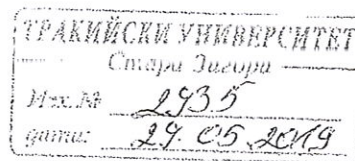 ТРАКИЙСКИ УНИВЕРСИТЕТ
Стара Загора
Изх. № 2935
дата: 29.05.2019